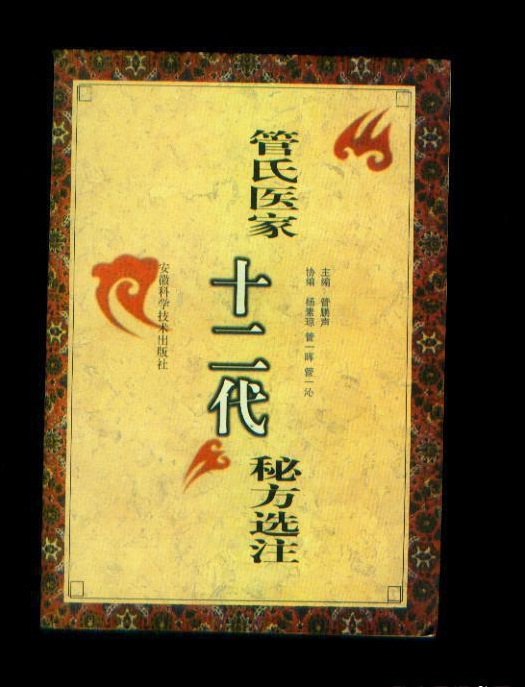 管氏医家
十二代
秘方选注
主编 管鹏声
协编 杨素琼 管一晖 管一沁
安徽科学技术出版社